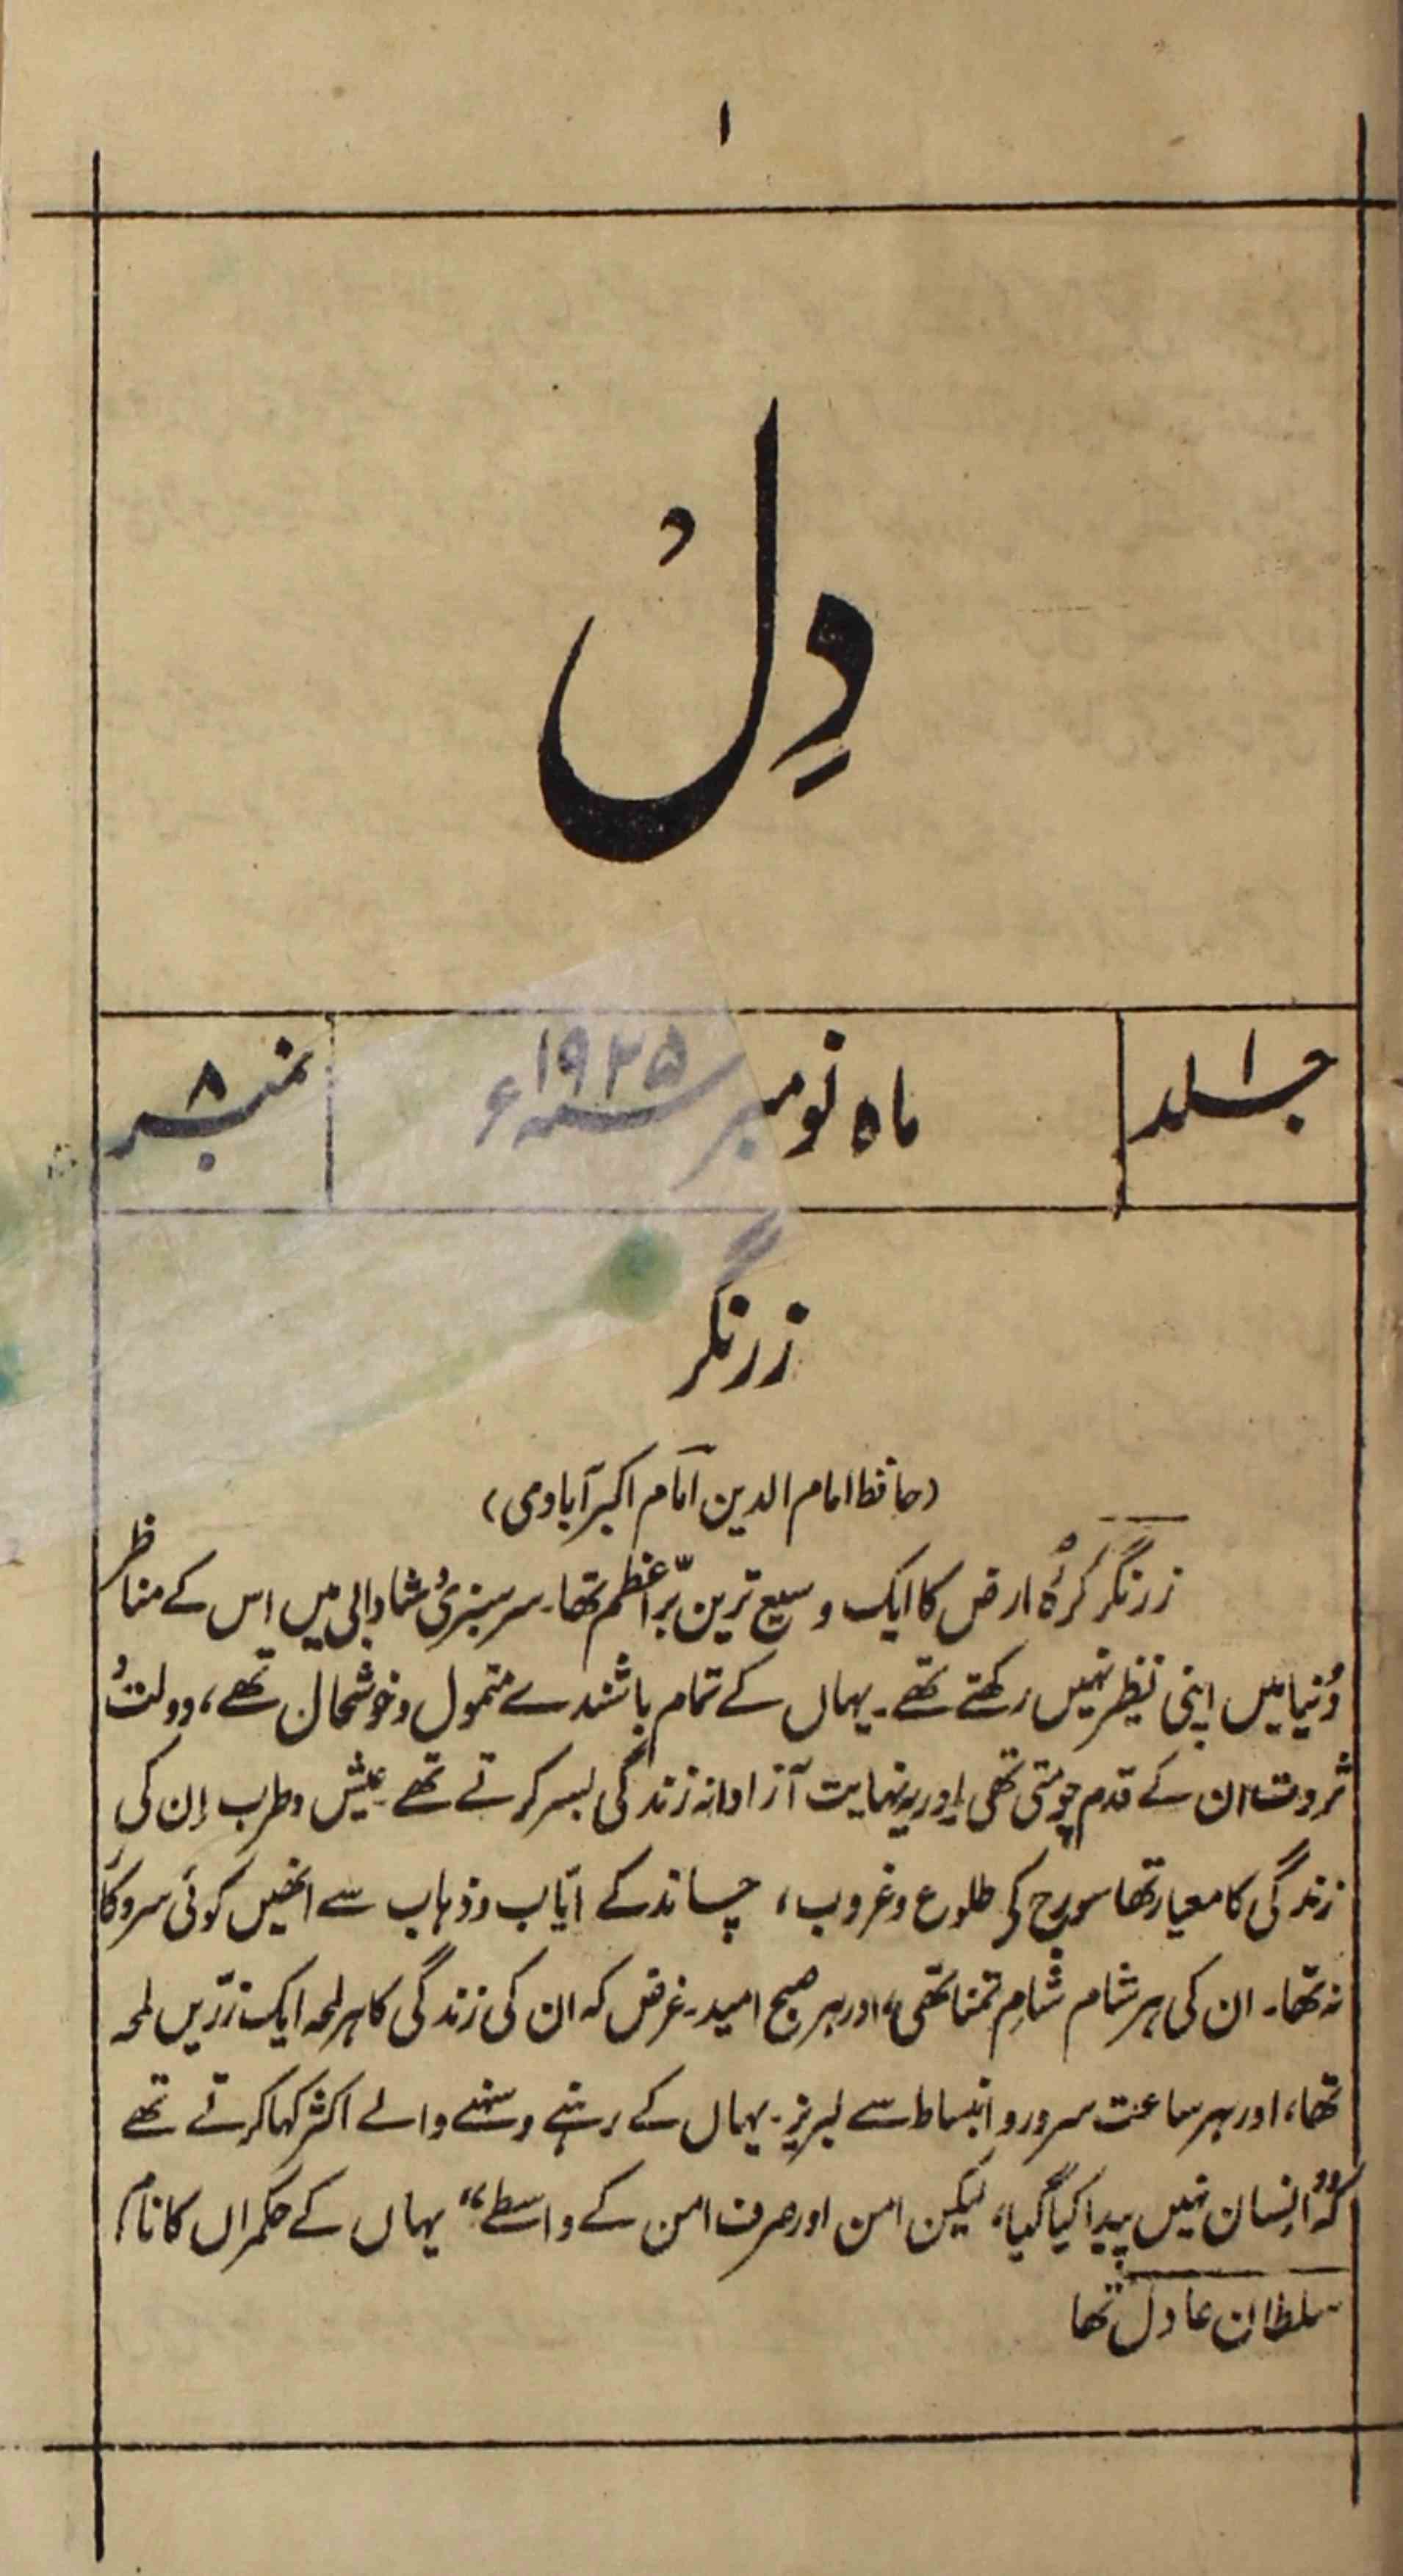 ۱
دِل
جلد ۱
ماہ نومبر ۱۹۲۵ء
نمبر ۸
زرنگر
(حافظ امام الدین امام اکبرآبادی)
زرنگر کرۂ ارض کا ایک وسیع ترین برّاعظم تھا۔ سرسبزیُ شادابی میں اس کے مناظر
دُنیا میں اپنی نظیر نہیں رکھتے تھے۔ یہاں کے تمام باشندے متمول وخوشحال تھے، دولتُ
ثروت ان کے قدم چومتی تھی اور یہ نہایت آزادانہ زندگی بسر کرتے تھے۔ عیش وطرب اِن کی
زندگی کا معیار تھا سورج کی طلوع وغروب، چاند کے ایّاب وذہاب سے انھیں کوئی سروکار
نہ تھا۔ ان کی ہر شام شامِ تمنا تھی، اور ہر صبح امید۔ غرض کہ ان کی زندگی کا ہر لمحہ ایک زرّیں لمحہ
تھا، اور ہر ساعت سرور وانبساط سے لبریز۔ یہاں کے رہنے وسہنے والے اکثر کہا کرتے تھے
کہ "انسان نہیں پیدا کیا گیا، لیکن امن اور صرف امن کے واسطے" یہاں کے حکمراں کا نام
سلطان عادل تھا